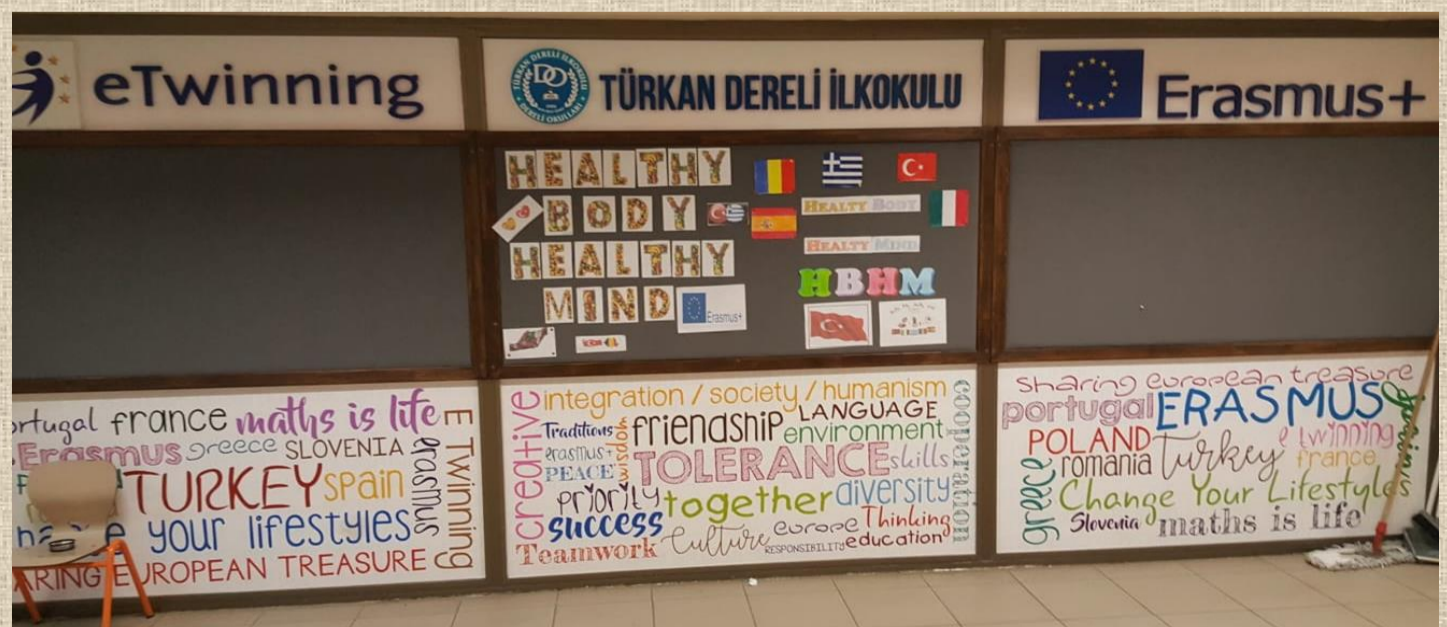 eTwinning
TÜRKAN DERELİ İLKOKULU
TÜRKAN DERELİ İLKOKULU
DERELİ OKULLARI
Erasmus+
HEALTHY
BODY
HEALTHY
MIND
HEALTY BODY
HEALTY MIND
HBHM
Erasmus+
rtugal france maths is life
Erasmus greece SLOVENIA
TURKEY spain
your lifestyles
ARING EUROPEAN TREASURE
erasmus
E Twinning
creative
integration / society / humanism
Traditions friendship LANGUAGE
erasmus+ wisdom environment
PEACE TOLERANCE skills
priority together diversity
success Culture europe Thinking
Teamwork RESPONSIBILITY education
cooperation
sharing european treasure
portugal ERASMUS
POLAND Turkey e twinning
romania france
greece Change Your Lifestyles
Slovenia maths is life